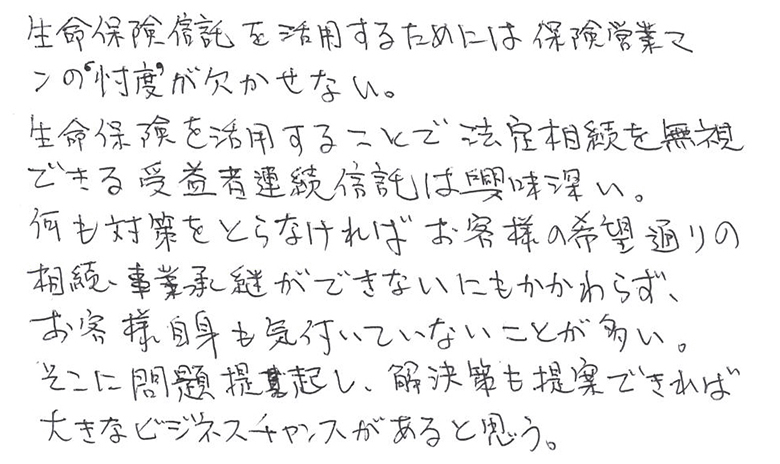 生命保険信託を活用するためには保険営業マ
ンの“忖度”が欠かせない。
生命保険を活用することで法定相続を無視
できる受益者連続信託は興味深い。
何も対策をとらなければお客様の希望通りの
相続、事業承継ができないにもかかわらず、
お客様自身も気付いていないことが多い。
そこに問題提起し、解決策も提案できれば
大きなビジネスチャンスがあると思う。